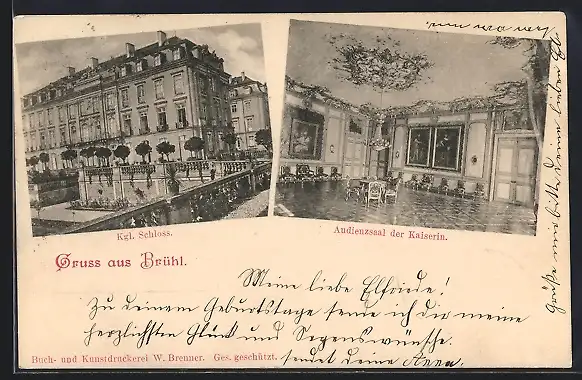 Kgl. Schloss.
Audienzsaal der Kaiserin.
Gruss aus Brühl.
Meine liebe Elfriede!
Zu deinem Geburtstage sende ich dir meine
herzlichsten Glück und Segenswünsche.
sendet deine
Buch- und Kunstdruckerei W. Brenner. Ges. geschützt.
Grüße mir bitte deine lieben
von